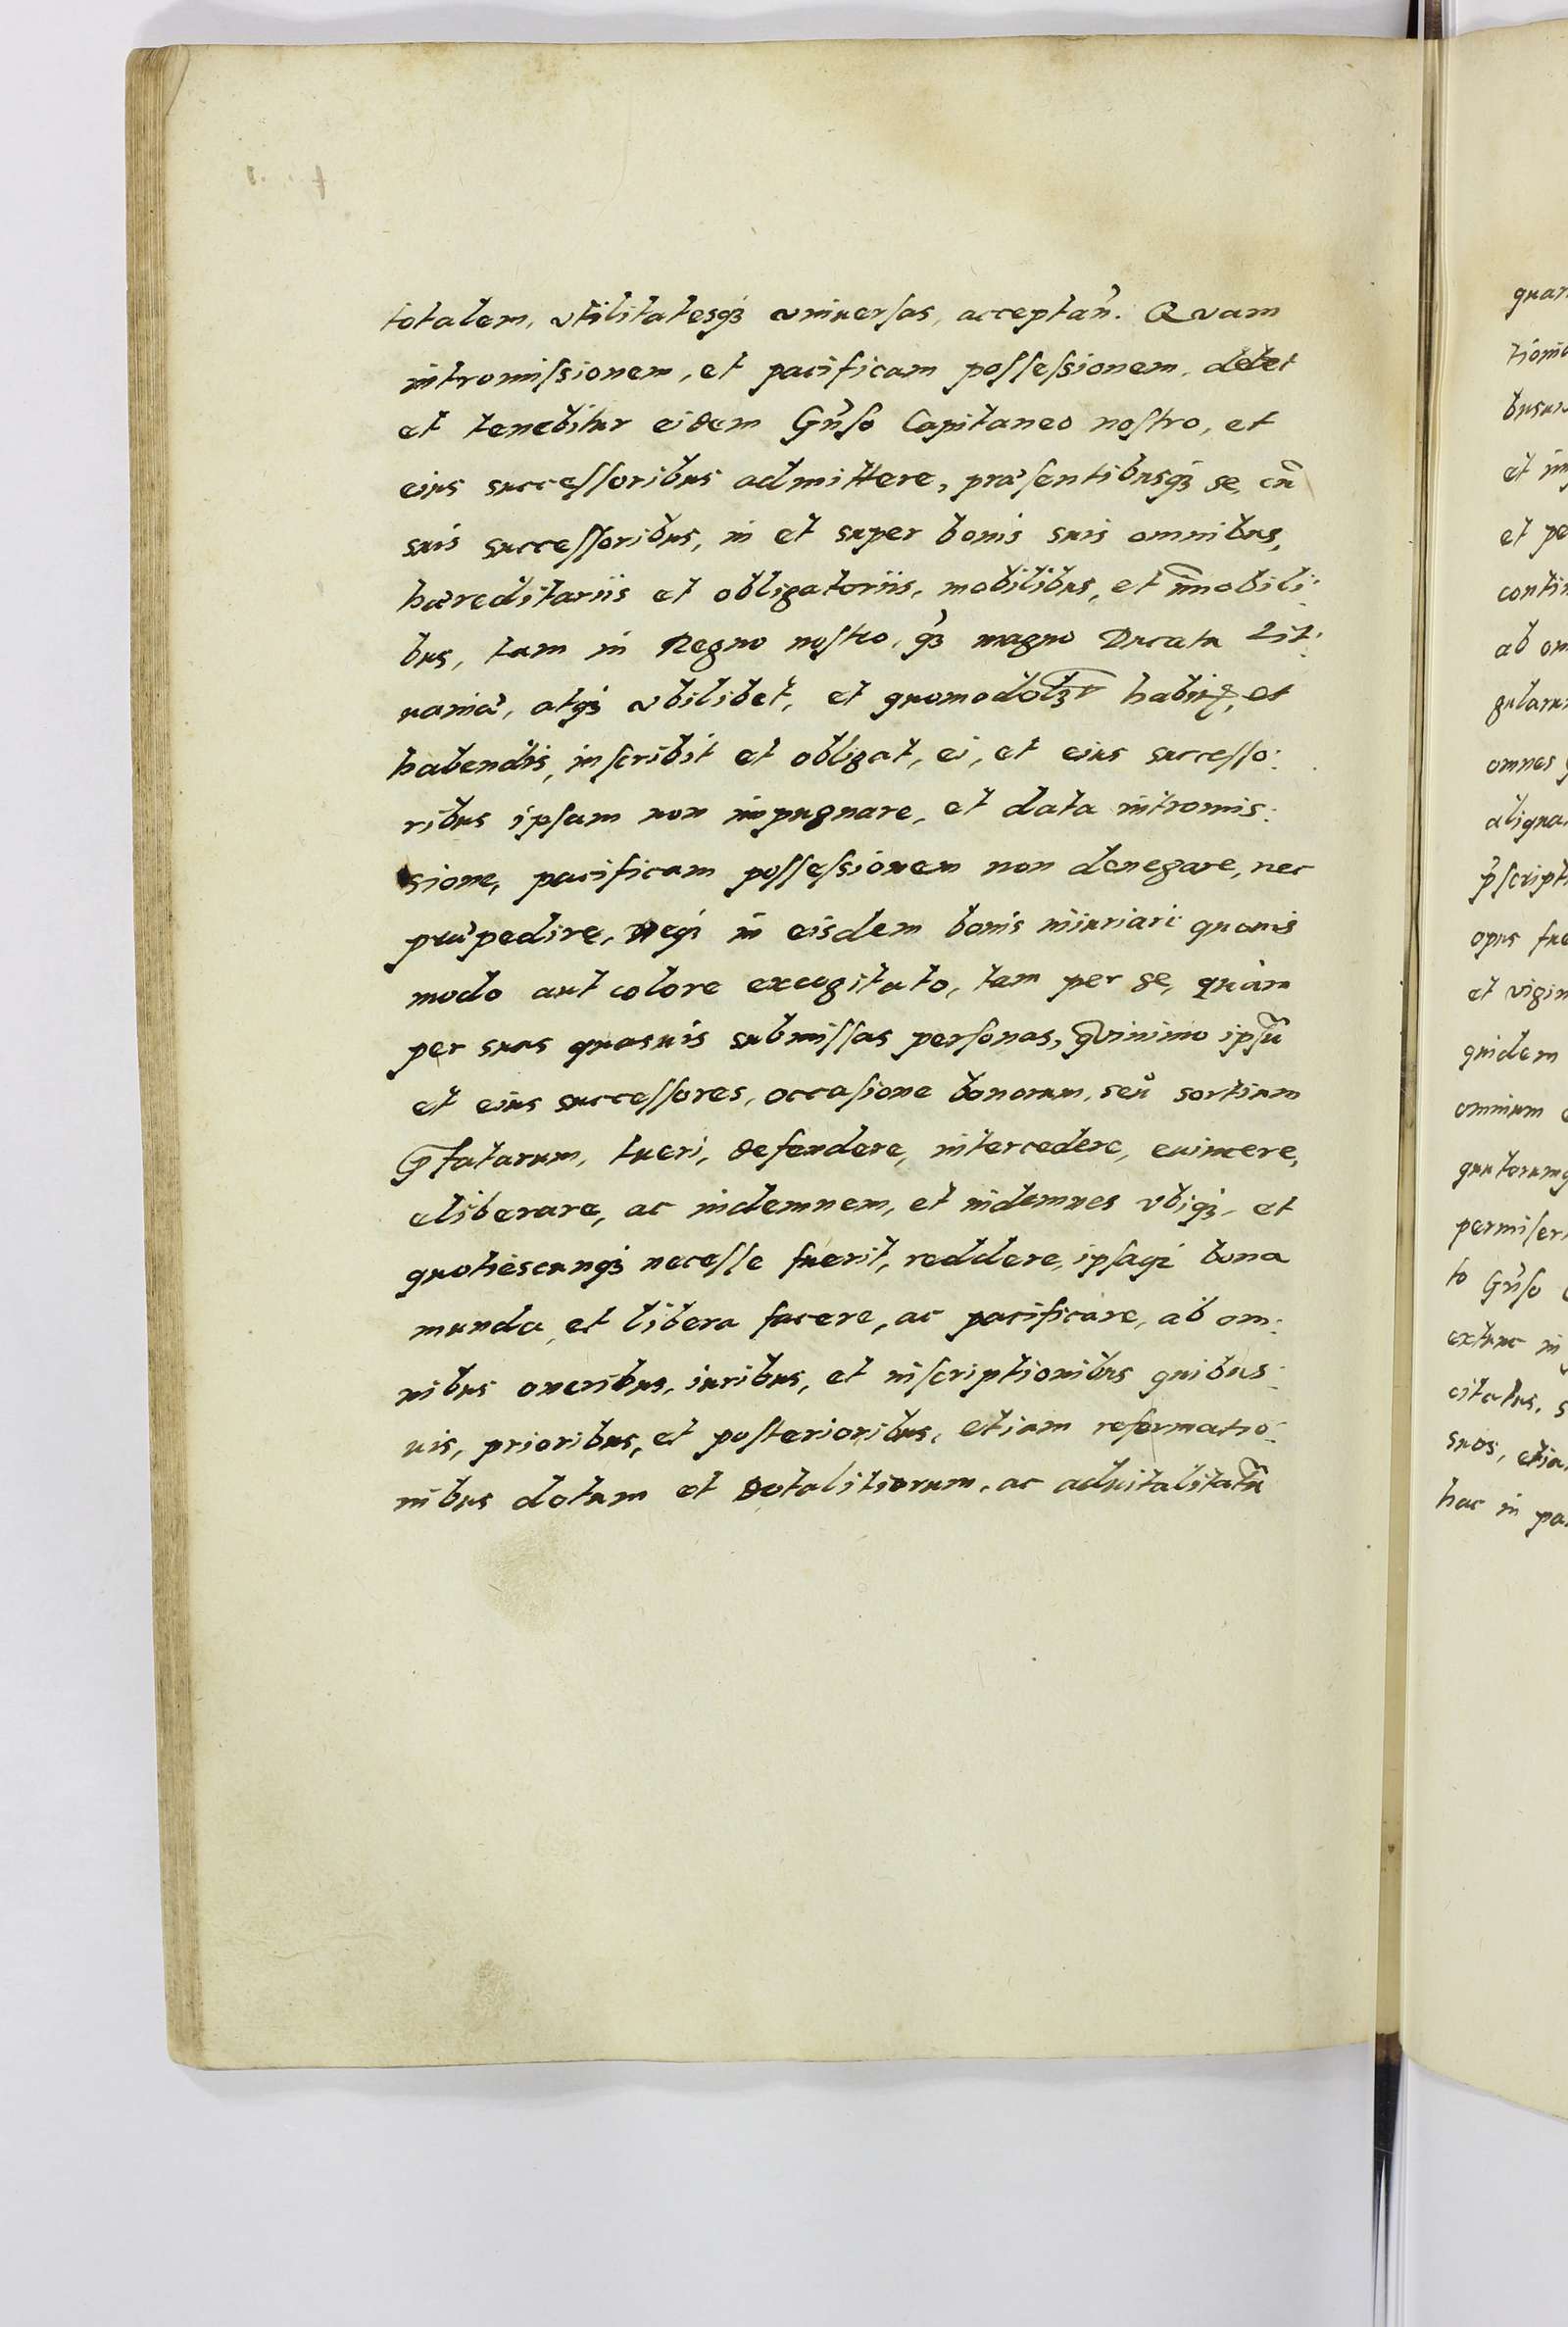 totalem, vtilitatesqꝫ vniuerſas, acceptan̄. Quam
intromiſsionem, et pacificam poſſeſsionem, debet
et tenebitur eidem Gn̄ſo Capitaneo noſtro, et
eius succeſſoribus admittere, præſentibusqꝫ se, cū
suis succeſſoribus, in et super bonis suis omnibus,
hæreditariis et obligatoriis, mobilibus, et im̄obili:
bus, tam in Regno noſtro, qꝫ magno Ducatu Lit:
uaniæ, atqꝫ vbilibet, et quomodolꝫt habitꝭ, et
habendis, inſcribit et obligat, ei, et eius succeſſo:
ribus ipſam non impugnare, et data intromis:
sione, pacificam poſſeſsionem non denegare, nec
præpedire, Neqꝫ in eisdem bonis iniuriari quouis
modo aut colore excogitato, tam per se, quàm
per suas quasuis submiſſas perſonas, quinimo ipſū
et eius succeſſores, occaſione bonorum, seu sortium
p̄fatarum, tueri, defendere, intercedere, euincere,
eliberare, ac indemnem, et indemnes vbiqꝫ, et
quotiescunqꝫ neceſſe fuerit, reddere, ipſaqꝫ bona
munda et libera facere, ac pacificare, ab om:
nibus oneribus, iuribus, et inſcriptionibus quibus:
uis, prioribus, et poſterioribus, etiam reformatio:
nibus dotum et dotalitiorum, ac aduitalitatū
quar
tionib
busui
et im
et pe
contin
ab om
gularum
omnes
aliqua
p̄ſcripti
opus fue
et vigin
quidem
omnium
quotumq
permiſer
to Gn̄ſo
extunc in
citatus, s
suos, etia
hac in pa